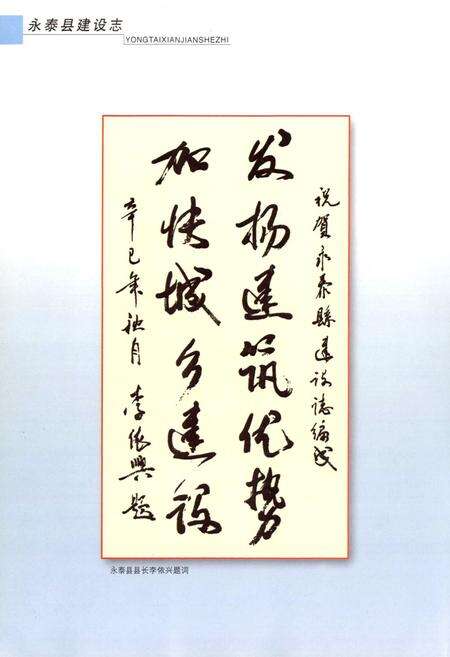 永泰县建设志
YONGTAIXIANJIANSHEZHI
祝贺永泰縣建設誌編成
发扬建筑优势
加快城乡建设
辛巳年秋月 李依興题
永泰县县长李依兴题词